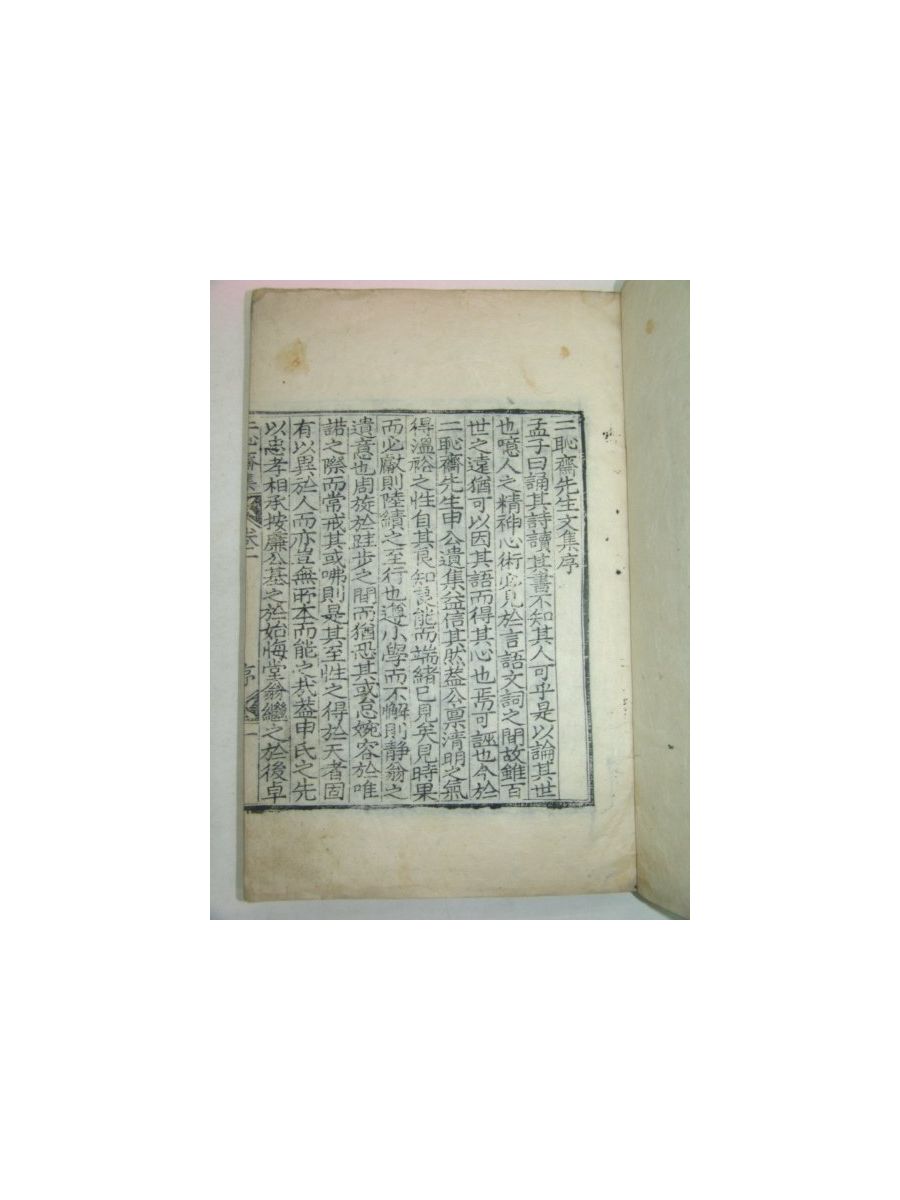 二恥齋先生文集序
孟子曰誦其詩讀其書不知其人可乎是以論其世
也噫人之精神心術必見於言語文詞之間故雖百
世之遠猶可以因其語而得其心也焉可誣也今於
二恥齋先生申公遺集益信其然蓋公稟淸明之氣
得溫裕之性自其良知良能而端緖已見矣見時果
而必獻則陸績之至行也遵小學而不懈則静翁之
遺意也周旋於跬步之間而猶恐其或忘婉容於唯
諾之際而常戒其或咈則是其至性之得於天者固
有以異於人而亦豈無所本而能之哉蓋申氏之先
以忠孝相承按廉公基之於始悔堂翁繼之於後卓
二恥齋集 卷一 序 一